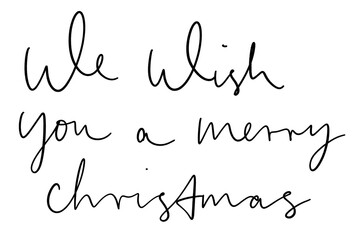 We Wish
you a merry
christmas